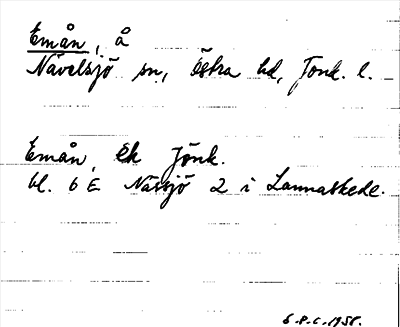 Emån, å
Nävelsjö sn, Östra hd, Jönk. l.
Emån, Ek Jönk.
bl. 6 E Nässjö 2 i Lannaskede.
S.P.C. 1958.